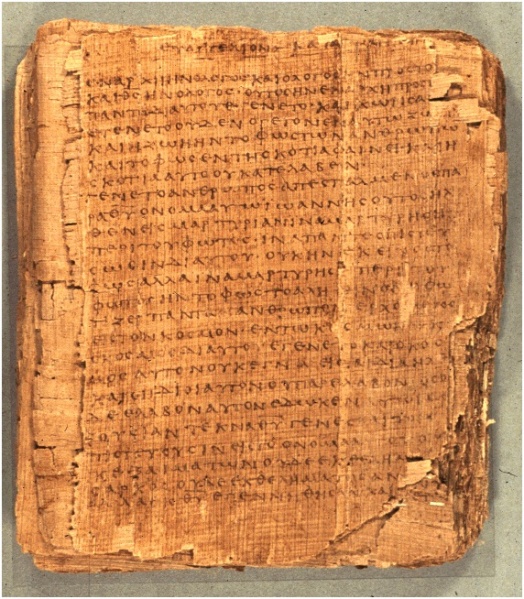 ΕΥΑΓΓΕΛΙΟΝ ΚΑΤΑ
ΕΝ ΑΡΧΗ ΗΝ Ο ΛΟΓΟϹ ΚΑΙ Ο ΛΟΓΟϹ ΗΝ ΠΡΟϹ ΤΟ
ΚΑΙ ΘϹ ΗΝ Ο ΛΟΓΟϹ · ΟΥΤΟϹ ΗΝ ΕΝ ΑΡΧΗ ΠΡΟϹ
ΠΑΝΤΑ ΔΙ ΑΥΤΟΥ ΕΓΕΝΕΤΟ · ΚΑΙ ΧΩΡΙϹ Α
ΕΓΕΝΕΤΟ ΟΥΔΕΝ Ο ΓΕΓΟΝΕΝ ΕΝ ΑΥΤΩ ΖΩ
ΚΑΙ Η ΖΩΗ ΗΝ ΤΟ ΦΩϹ ΤΩΝ ΑΝΘΡΩΠΩ
ΚΑΙ ΤΟ ΦΩϹ ΕΝ ΤΗ ϹΚΟΤΙΑ ΦΑΙΝΕΙ ΚΑΙ Η
ϹΚΟΤΙΑ ΑΥΤΟ ΟΥ ΚΑΤΕΛΑΒΕΝ
ΓΕΝΕΤΟ ΑΝΘΡΩΠΟϹ ΑΠΕϹΤΑΛΜΕΝΟϹ ΠΑ
ΡΑ ΘΥ ΟΝΟΜΑ ΑΥΤΩ ΙΩΑΝΝΗϹ ΟΥΤΟϹ ΗΛ
ΘΕΝ ΕΙϹ ΜΑΡΤΥΡΙΑΝ ΙΝΑ ΜΑΡΤΥΡΗϹΗ
ΠΕΡΙ ΤΟΥ ΦΩΤΟϹ · ΙΝΑ ΠΑΝΤΕϹ ΠΙϹΤΕΥ
ϹΩϹΙΝ ΔΙ ΑΥΤΟΥ · ΟΥΚ ΗΝ ΕΚΕΙΝΟϹ ΤΟ
ΦΩϹ ΑΛΛΑ ΙΝΑ ΜΑΡΤΥΡΗϹΗ ΠΕΡΙ ΤΟΥ
ΦΩΤΟϹ ΗΝ ΤΟ ΦΩϹ ΤΟ ΑΛΗΘΙΝΟΝ Ο ΦΩ
ΤΙΖΕΙ ΠΑΝΤΑ ΑΝΘΡΩΠΟΝ ΕΡΧΟΜΕΝΟ
ΕΙϹ ΤΟΝ ΚΟϹΜΟΝ · ΕΝ ΤΩ ΚΟϹΜΩ ΗΝ
ΚΟϹΜΟϹ ΔΙ ΑΥΤΟΥ ΕΓΕΝΕΤΟ ΚΑΙ Ο ΚΟϹ
ΜΟϹ ΑΥΤΟΝ ΟΥΚ ΕΓΝΩ ΕΙϹ ΤΑ ΙΔΙΑ ΗΛ
ΚΑΙ ΟΙ ΙΔΙΟΙ ΑΥΤΟΝ ΟΥ ΠΑΡΕΛΑΒΟΝ · ΟϹΟ
ΔΕ ΕΛΑΒΟΝ ΑΥΤΟΝ ΕΔΩΚΕΝ ΑΥΤΟΙϹ Ε
ΞΟΥϹΙΑΝ ΤΕΚΝΑ ΘΥ ΓΕΝΕϹΘΑΙ ΤΟΙϹ
ΠΙϹΤΕΥΟΥϹΙΝ ΕΙϹ ΤΟ ΟΝΟΜΑ ΑΥΤΟΥ Ο
ΑΙΜΑΤΩΝ ΟΥΔΕ ΕΚ ΘΕΛΗ
ϹΑΡΚΟϹ ΟΥΔΕ ΕΚ ΘΕΛΗΜΑΤΟϹ ΑΝ
ΑΛΛΑ ΕΚ ΘΥ ΕΓΕΝΝΗΘΗϹΑΝ ΚΑΙ Ο